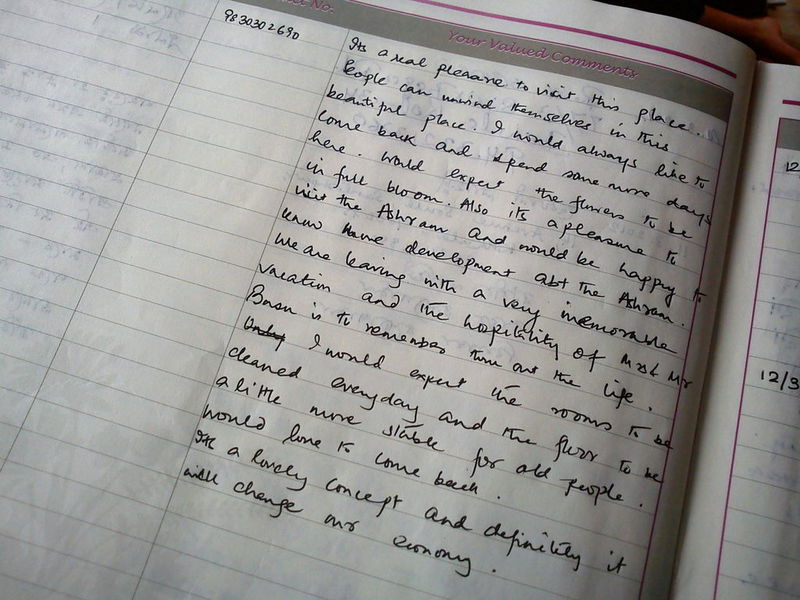 No.
Your Valued Comments
9830302690
Its a real pleasure to visit this place.
People can unwind themselves in this
beautiful place. I would always like to
come back and spend some more days
here. would expert the flowers to be
in full bloom. Also its a pleasure to
visit the Ashram and would be happy to
know development abt the Ashram.
We are leaving with a very memorable
vacation and the hospitility of Mrs & Mr
Basu is to remember thru out the life.
I would expert the rooms to be
cleaned everyday and the floor to be
a little more stable for old people.
would love to come back.
Its a lovely concept and definitely it
will change our economy.
12
12/3